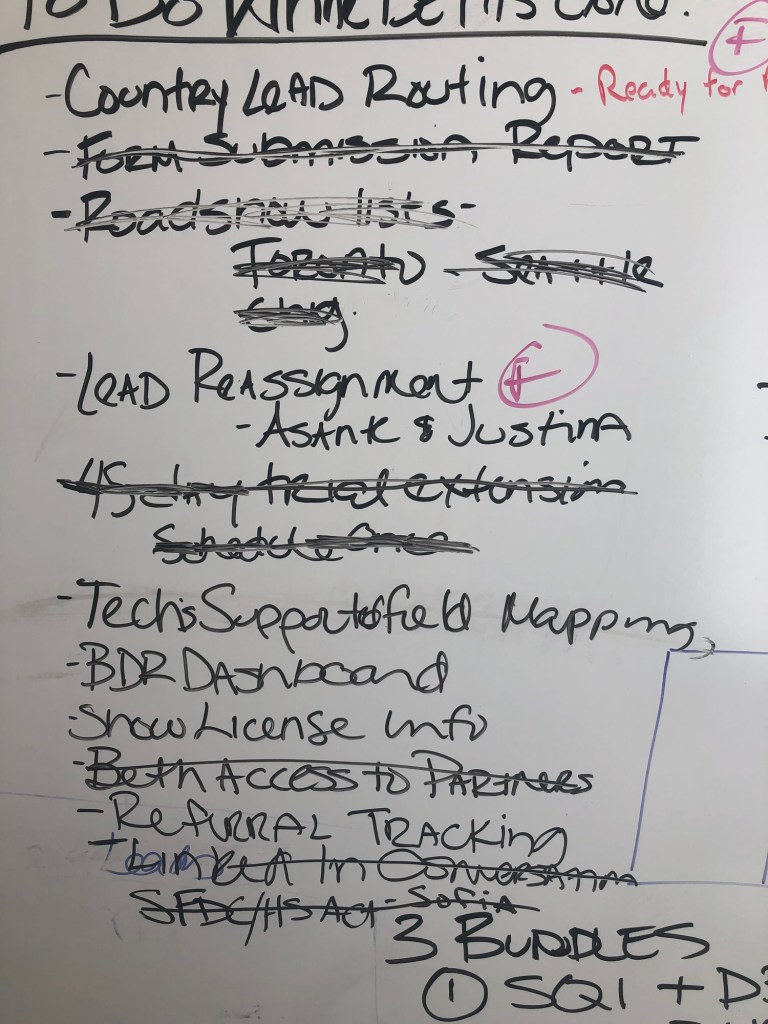 To Do While Beth is Gone!
- Country Lead Routing - Ready for
- Form Submission Report
- Roadshow lists -
Toronto - Seattle
- Lead Reassignment F
- Asank & Justina
45 day trial extension
Schedule Once
- Tech Support field Mapping
- BDR Dashboard
- Show License info
- Beth Access to Partners
- Referral Tracking
in
SFDC/HS Acct - Sofia
3 Bundles
① SQ1 +